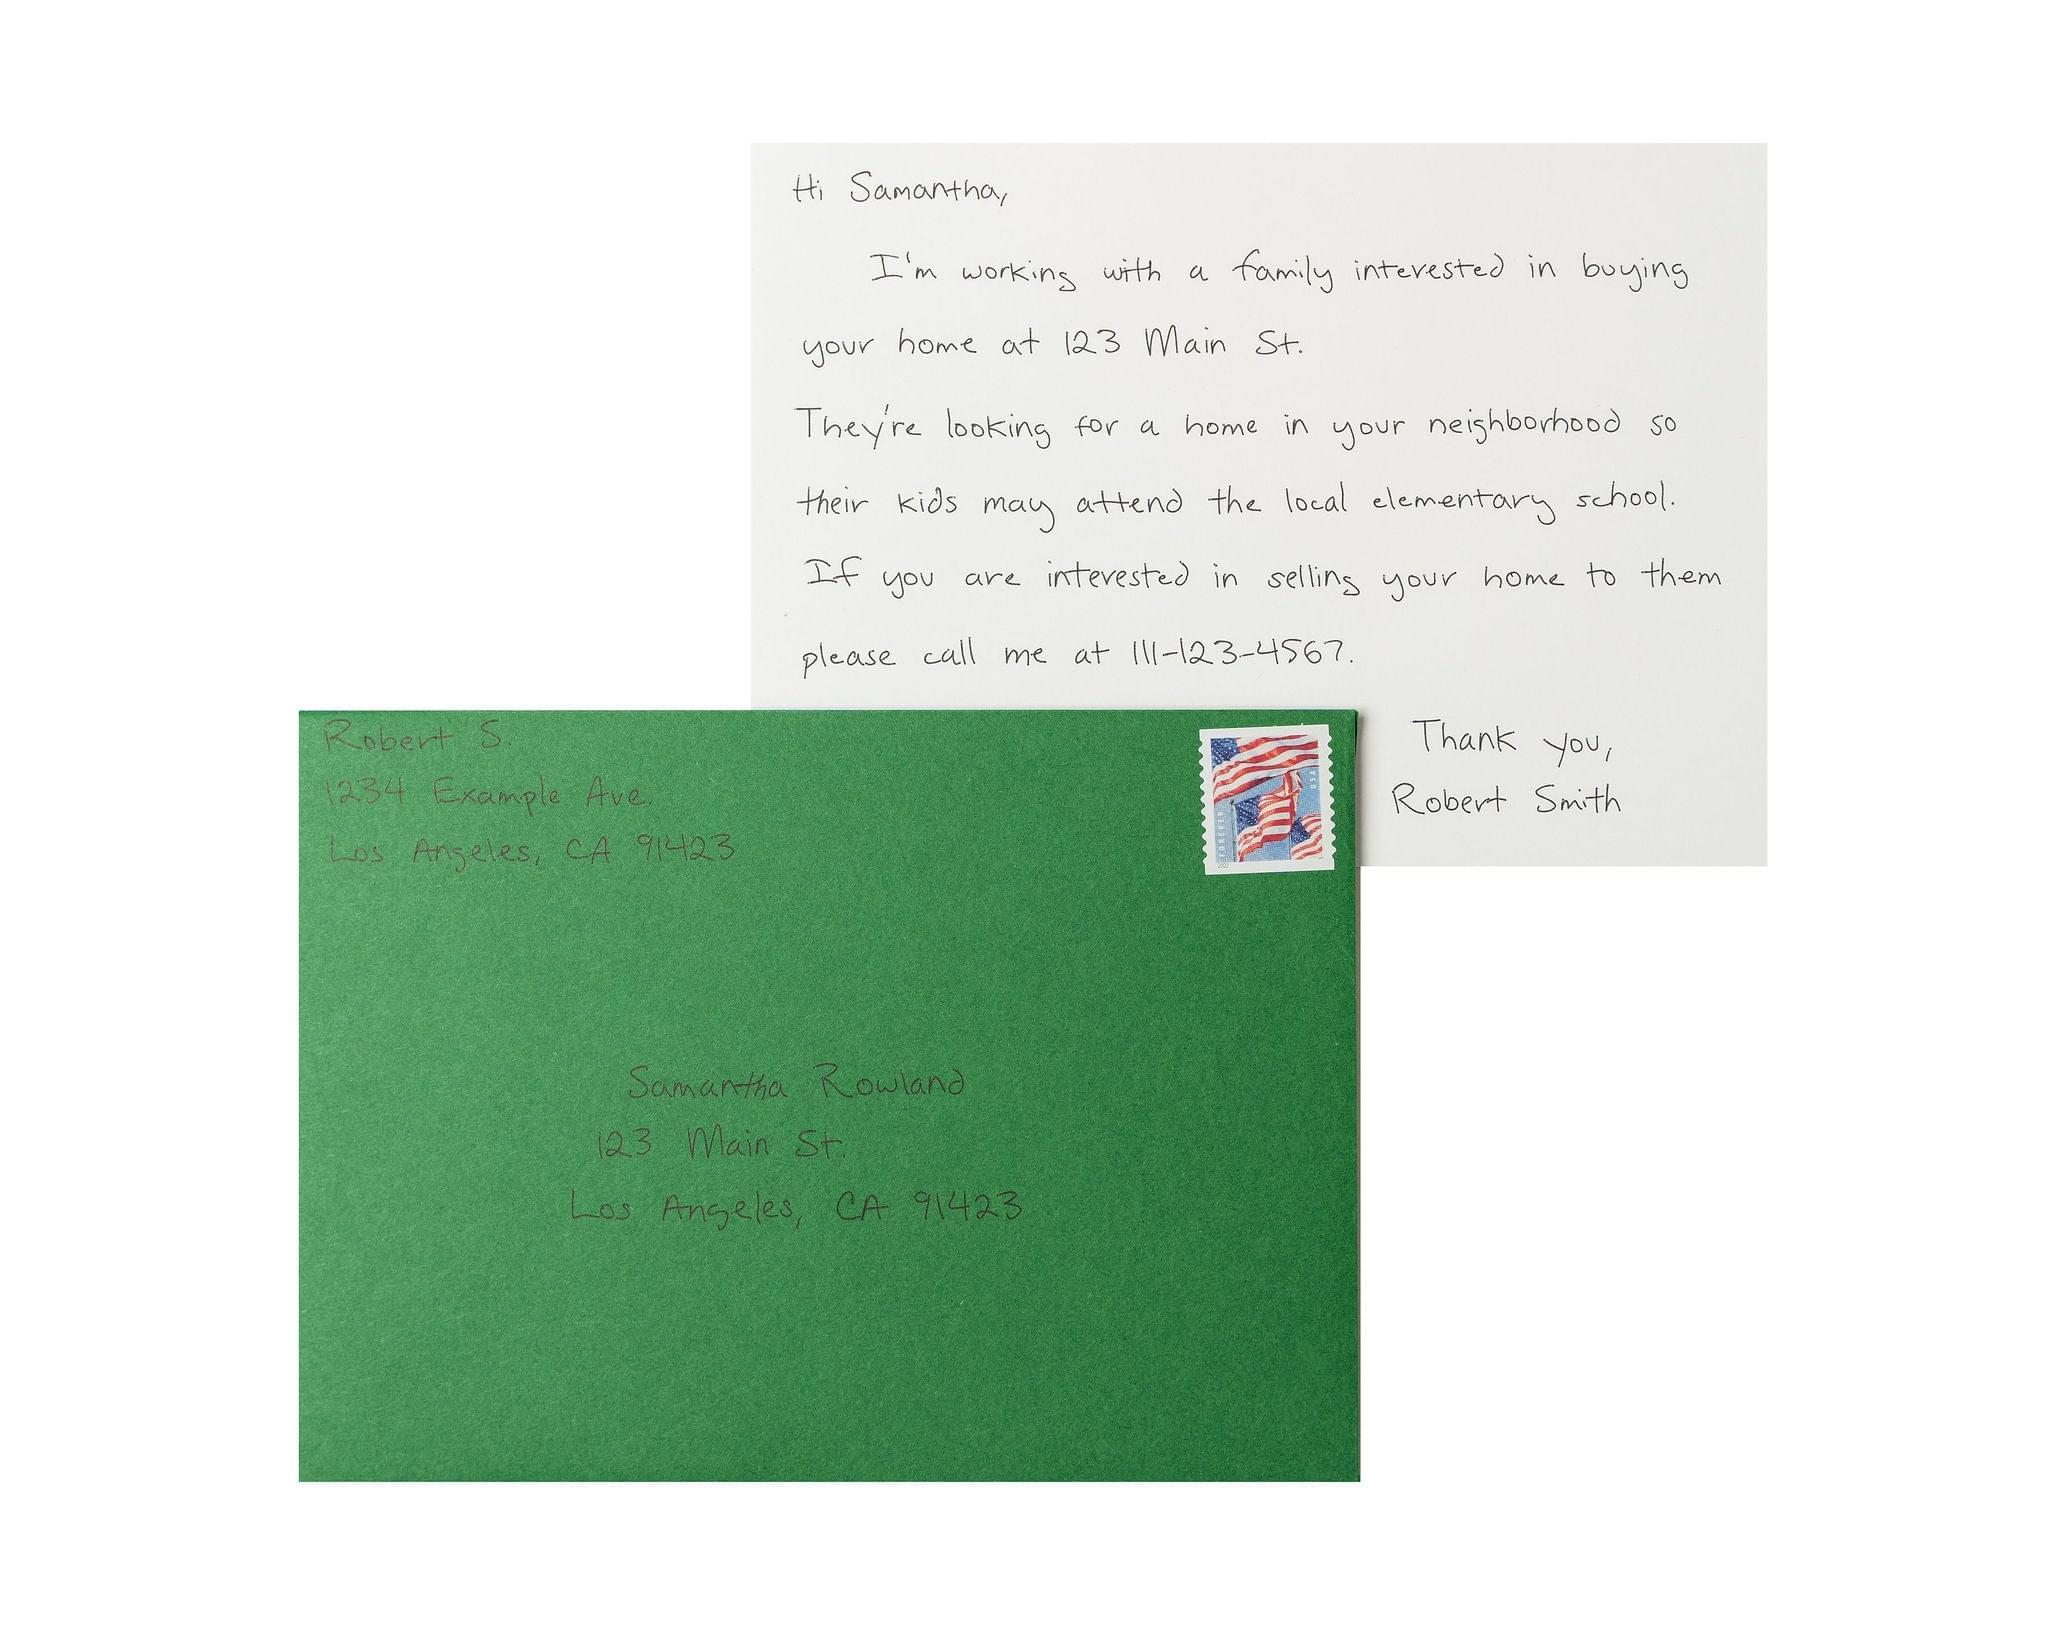 Hi Samantha,
I'm working with a family interested in buying
your home at 123 Main St.
They're looking for a home in your neighborhood so
their kids may attend the local elementary school.
If you are interested in selling your home to them
please call me at 111-123-4567.
Thank you,
Robert Smith
Robert S.
1234 Example Ave.
Los Angeles, CA 91423
FOREVER
USA
Samantha Rowland
123 Main St.
Los Angeles, CA 91423